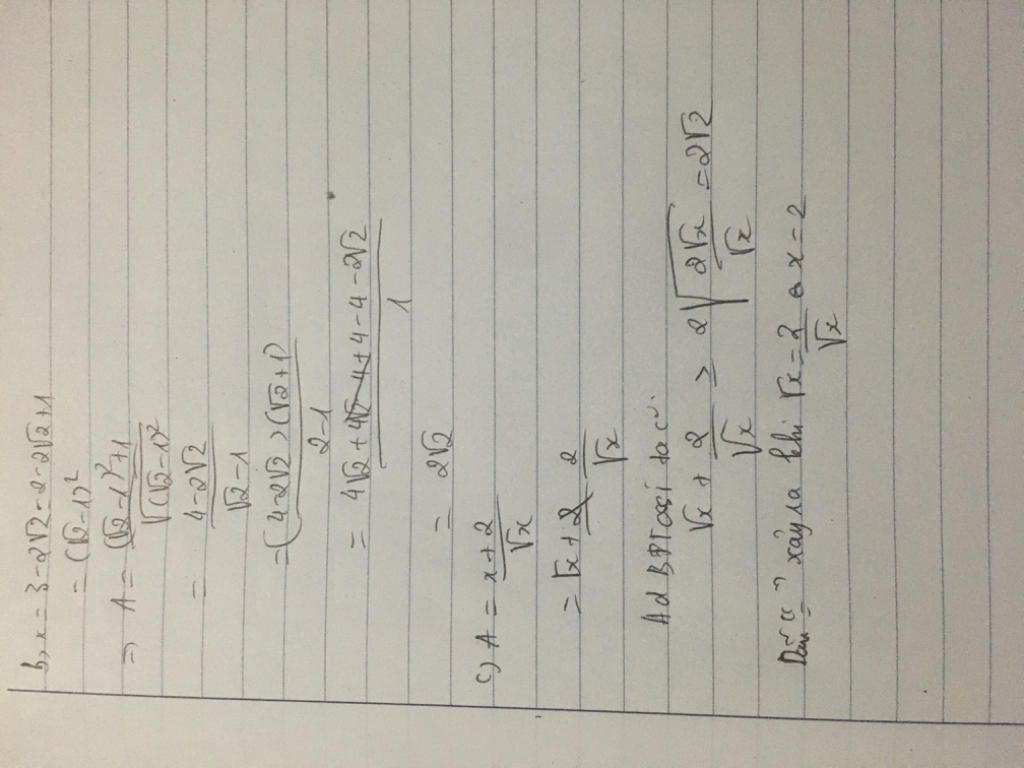 b, x = 3 - 2√2 = 2 - 2√2 + 1
= (√2 - 1)²
⇒ A = (√2 - 1)² + 1 / √(√2 - 1)²
= 4 - 2√2 / √2 - 1
= (4 - 2√2)(√2 + 1) / 2 - 1
= 4√2 + 4 - 4 - 2√2 / 1
= 2√2
c, A = x + 2 / √x
= √x + 2 / √x
Ad BĐT cosi ta có:
√x + 2/√x ≥ 2√(2√x/√x) = 2√2
Dấu "=" xảy ra khi √x = 2/√x ⇔ x = 2